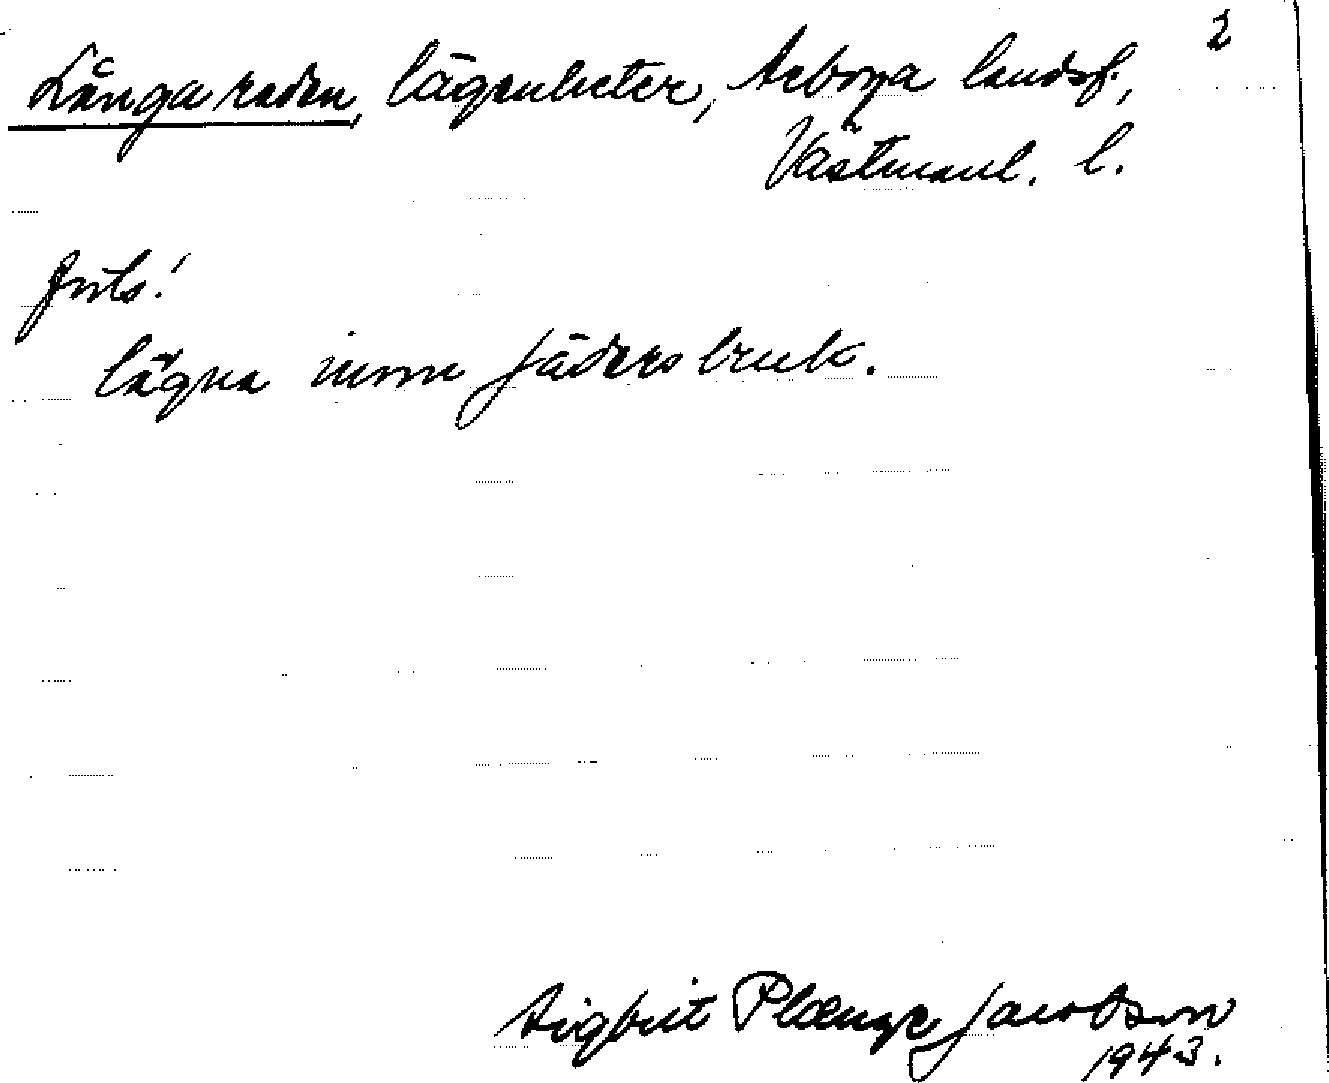 2
Långa raden, lägenheter, Arboga landsf.,
Västmanl. l.
Jfrls!
lägna inom Jäders bruk.
Sigbrit Plænge Jacobson
1943.